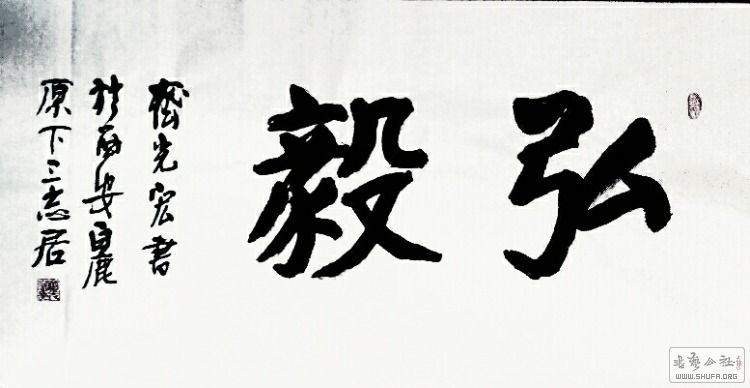 弘毅
嵇光宏書
於西安白鹿
原下三志居
書藝公社
WWW.SHUFA.ORG